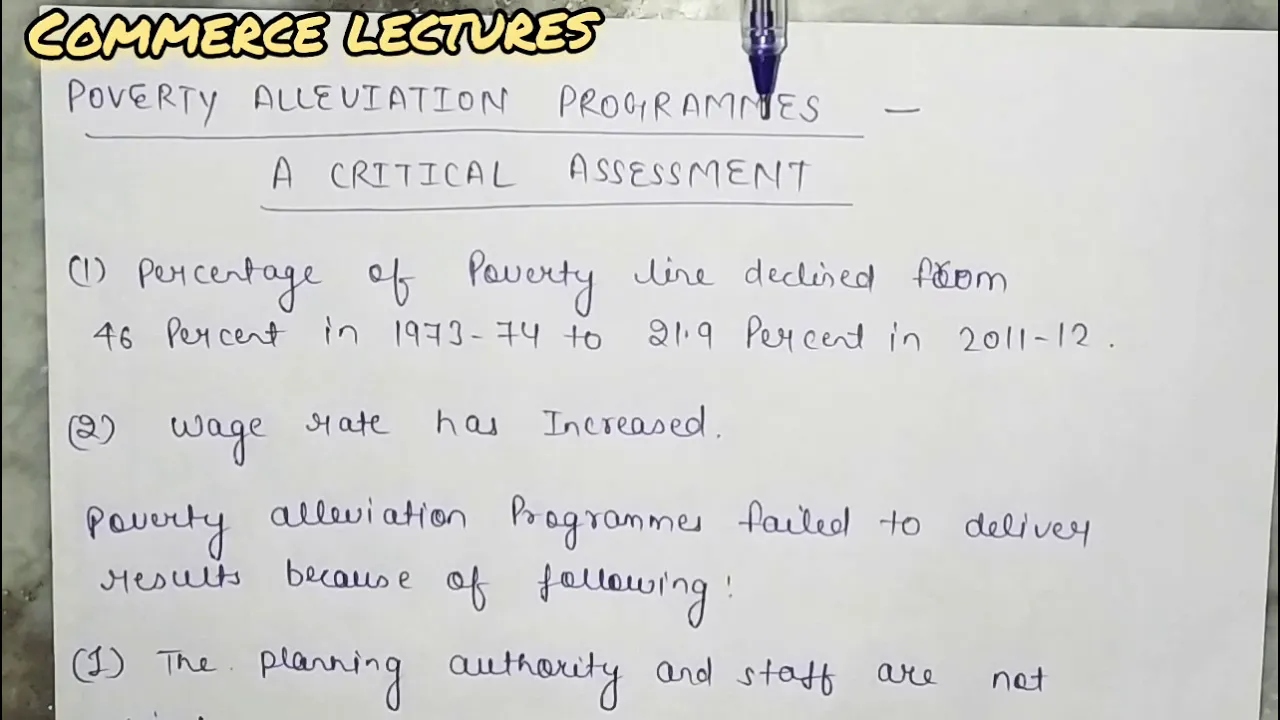 COMMERCE LECTURES
POVERTY ALLEVIATION PROGRAMMES -
A CRITICAL ASSESSMENT
(1) Percentage of Poverty line declined from
46 Percent in 1973-74 to 21.9 Percent in 2011-12.
(2) Wage rate has Increased.
Poverty alleviation Programmes failed to deliver
results because of following:
(1) The planning authority and staff are not